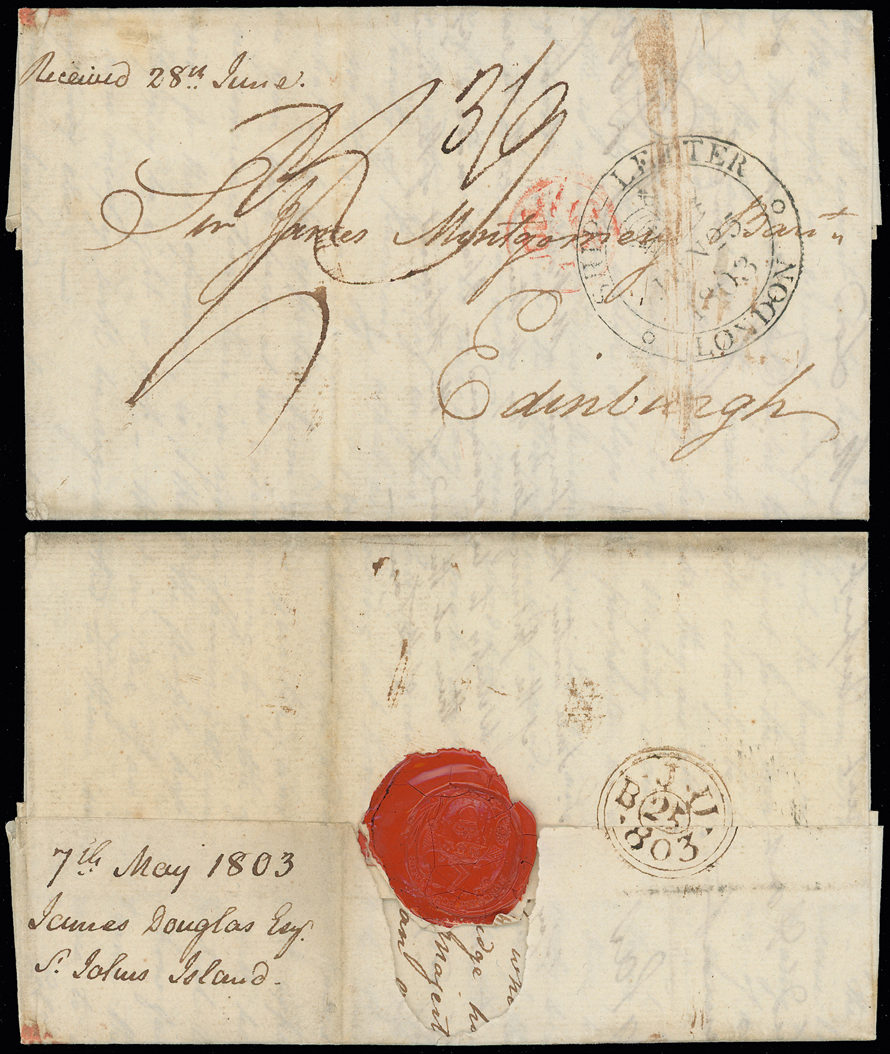 Received 28th June.
3/6
Sir James Montgomery Bart
Edinburgh
SHIP LETTER
1803
LONDON
7th May 1803
James Douglas Esq.
St. Johns Island.
B. J U.
25
803.
who
idge. he
Magert
an o